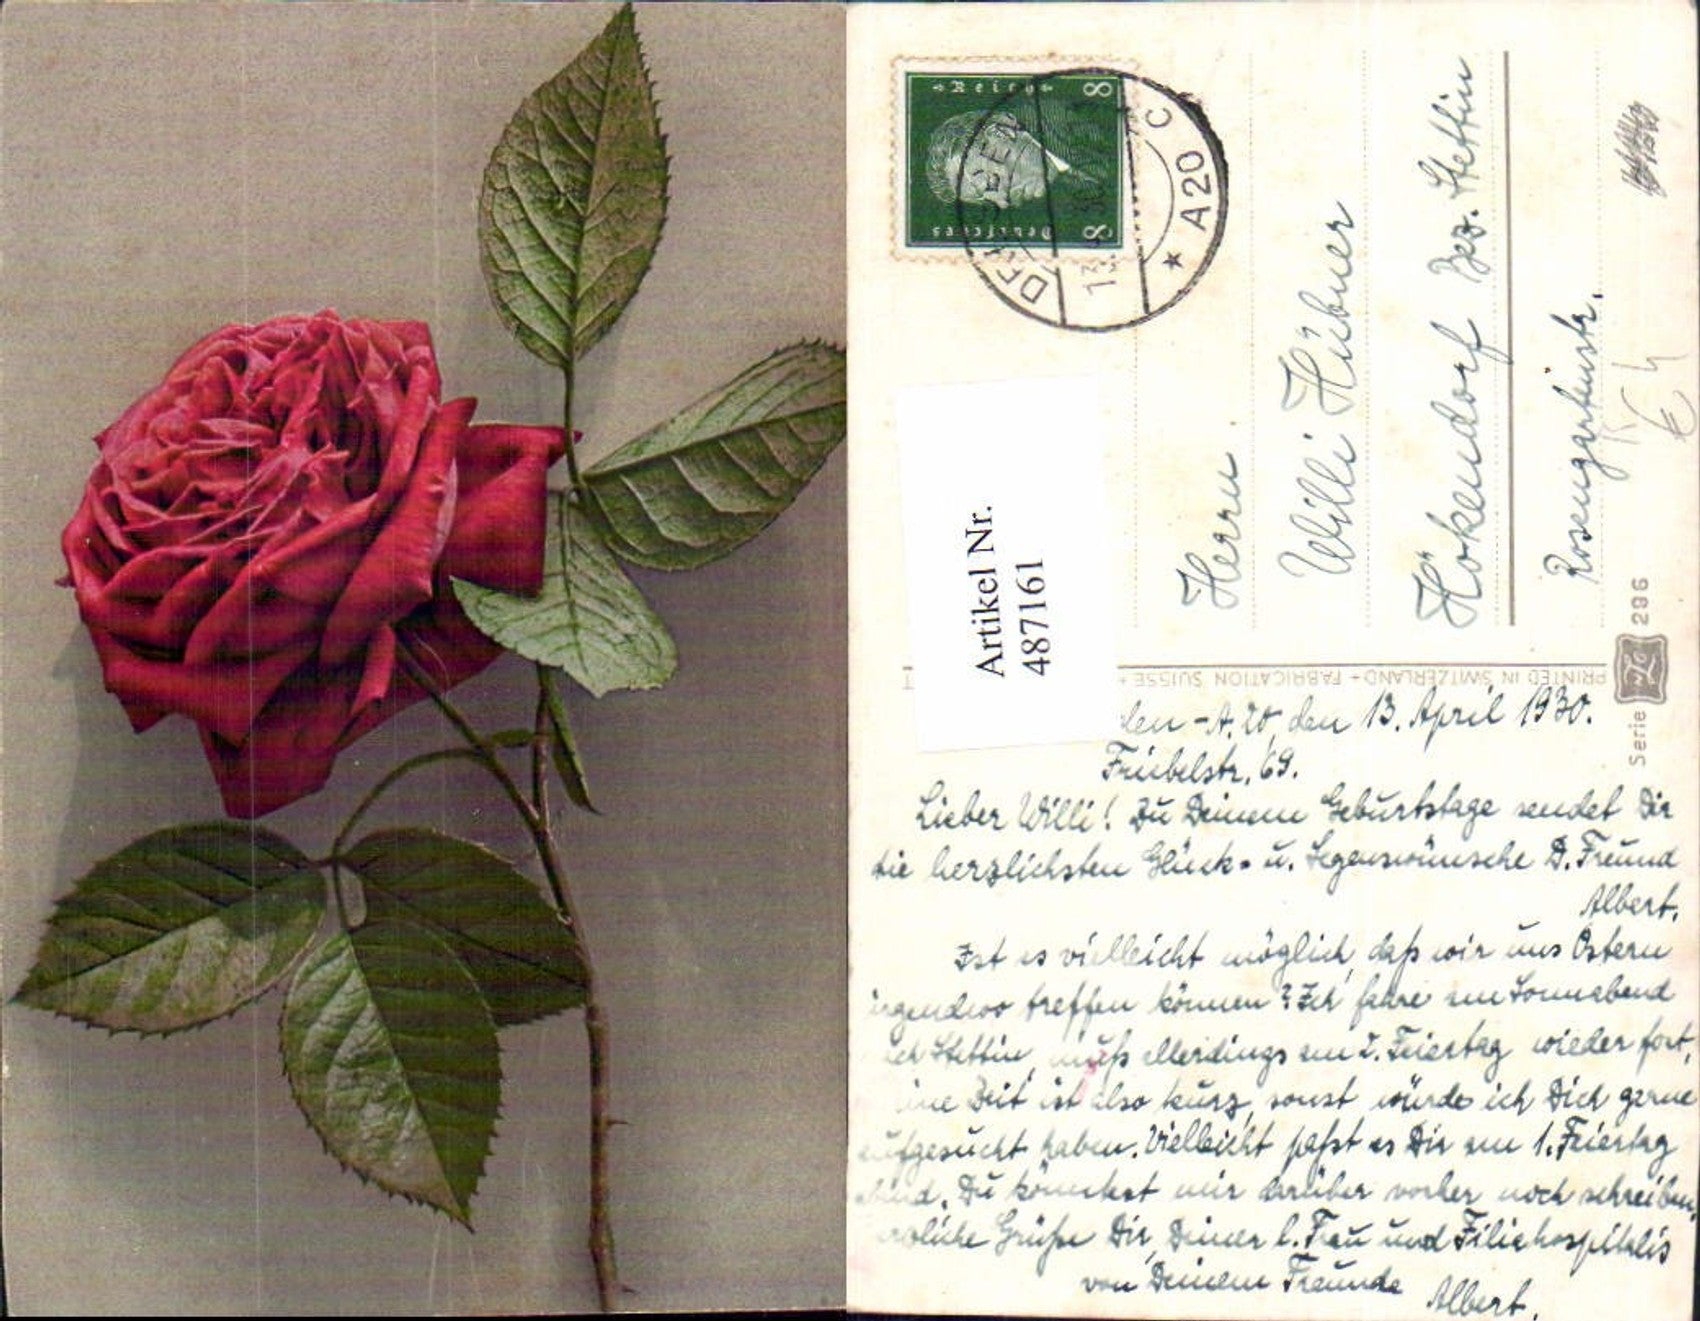 Deutsches Reich
8 8
DRESDEN
13.
A20
* C
Artikel Nr.
487161
Herrn
Willi Hübner
Hökendorf Bez. Stettin
Rosengartenstr.
PRINTED IN SWITZERLAND + FABRICATION SUISSE +
Serie 296
den - A. 20, den 13. April 1930.
Fröbelstr. 69.
Lieber Willi! Zu Deinem Geburtstage sendet Dir
die herzlichsten Glück- u. Segenswünsche D. Freund
Albert.
Ist es vielleicht möglich, daß wir uns Ostern
irgendwo treffen können? Ich fahre am Sonnabend
ach Stettin, muß allerdings am 2. Feiertag wieder fort,
ine Zeit ist also kurz, sonst würde ich Dich gerne
aufgesucht haben. Vielleicht paßt es Dir am 1. Feiertag
abend. Du könntest mir darüber vorher noch schreiben.
erzliche Grüße Dir, Deiner l. Frau und Filia hospitalis
von Deinem Freunde
Albert.